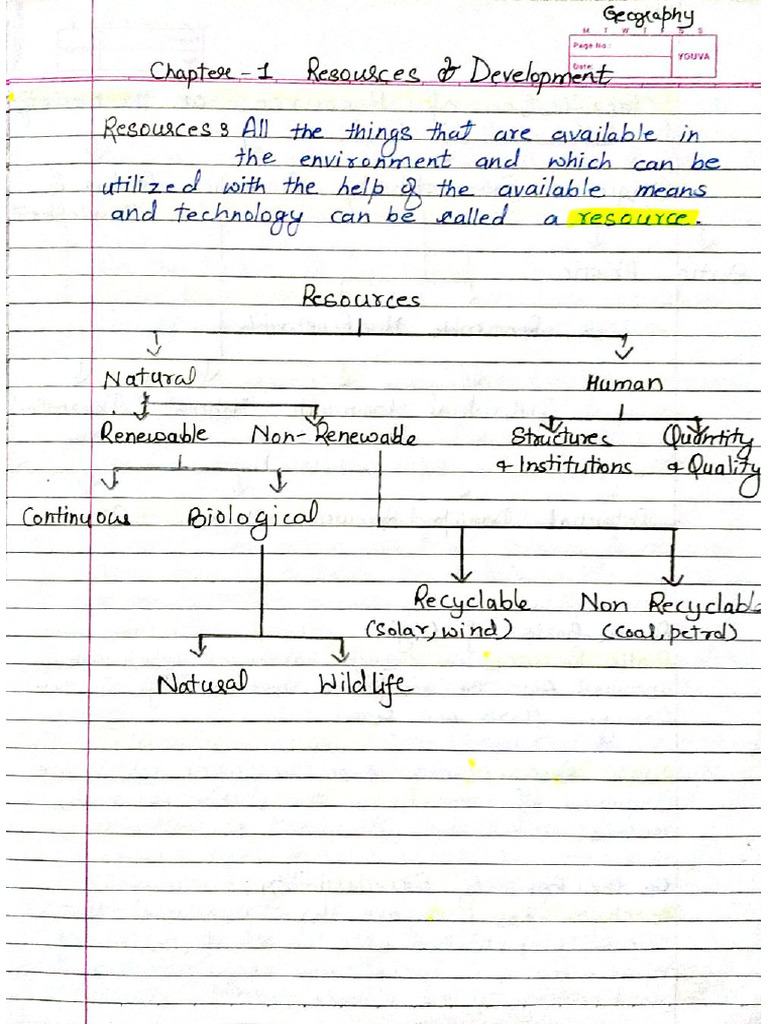 Geography
M T W T F S S
Page No.:
YOUVA
Date:
Chapter - 1 Resources & Development
Resources : All the things that are available in
the environment and which can be
utilized with the help of the available means
and technology can be called a resource.
Resources
Natural Human
Renewable Non-Renewable Structures Quantity
& Institutions & Quality
Continuous Biological
Recyclable Non Recyclable
(solar, wind) (coal, petrol)
Natural Wildlife